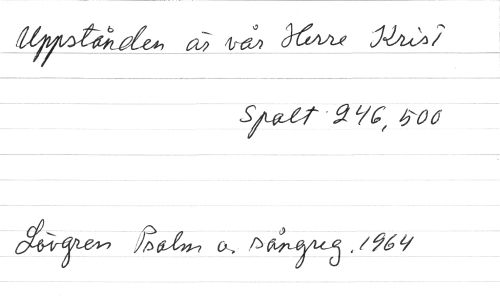 Uppstånden är vår Herre Krist
Spalt 246, 500
Lövgren Psalm o. sångreg. 1964